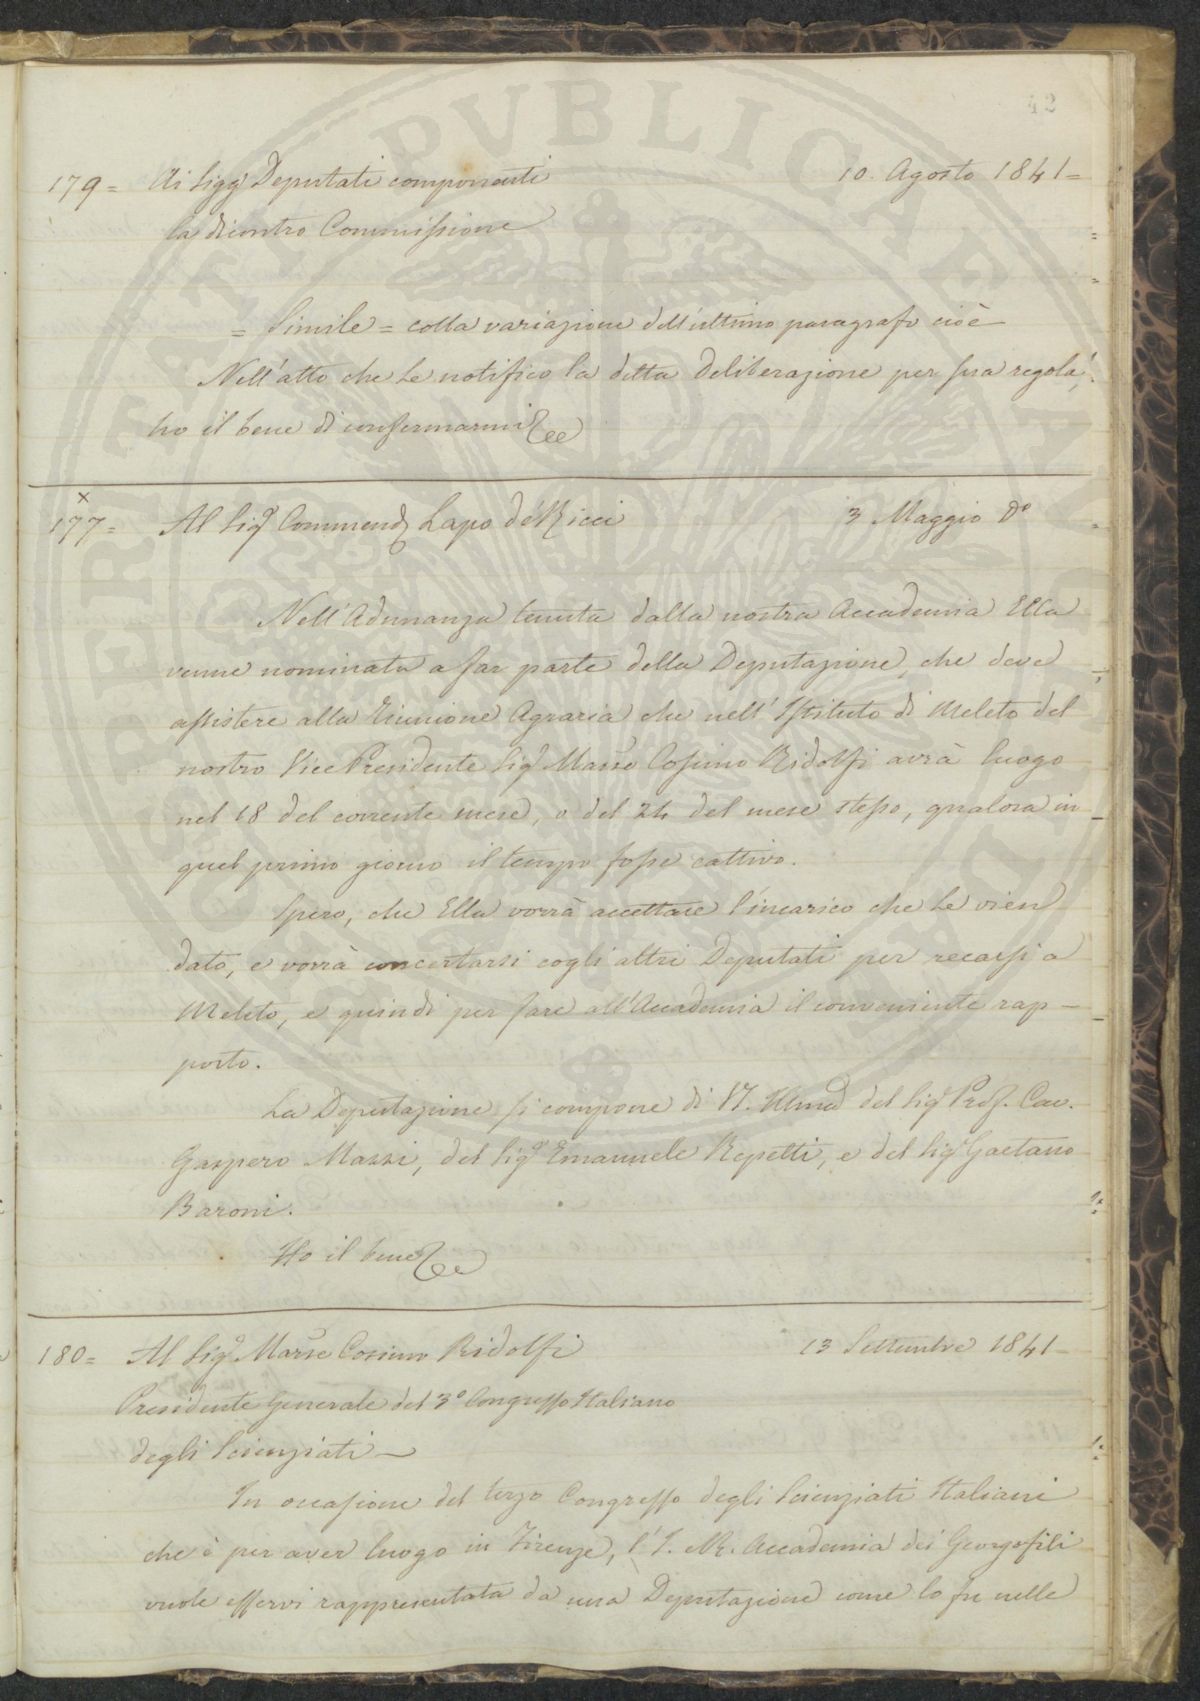 42
179= Ai Sigg.ri Deputati componenti 10. Agosto 1841=
la dicontro Commissione
= Simile = colla variazione dell'ultimo paragrafo cioè
Nell'atto che Le notifico la detta Deliberazione per sua regola,
ho il bene di confermarmi &c
x
177= Al Sig.r Commend.r Lapo de' Ricci 3 Maggio d.o
Nell'Adunanza tenuta dalla nostra Accademia Ella
venne nominata a far parte della Deputazione, che deve
assistere alla Riunione Agraria che nell'Istituto di Meleto del
nostro Vice Presidente Sig.r March.e Cosimo Ridolfi avrà luogo
nel 18 del corrente mese, o del 24 del mese stesso, qualora in
quel primo giorno il tempo fosse cattivo.
Spero, che Ella vorrà accettare l'incarico che Le vien
dato, e vorrà concertarsi cogli altri Deputati per recarsi a
Meleto, e quindi per fare all'Accademia il conveniente rap-
porto.
La Deputazione si compone di V.S. Illma del Sig.r Prof. Cav.
Gaspero Mazzi, del Sig.r Emanuele Repetti, e del Sig.r Gaetano
Baroni.
Ho il bene &c
180= Al Sig.r March.e Cosimo Ridolfi 13 Settembre 1841-
Presidente Generale del 3.o Congresso Italiano
degli Scienziati
In occasione del terzo Congresso degli Scienziati Italiani
che è per aver luogo in Firenze, l'I. e R. Accademia dei Georgofili
vuole esservi rappresentata da una Deputazione come lo fu nelle